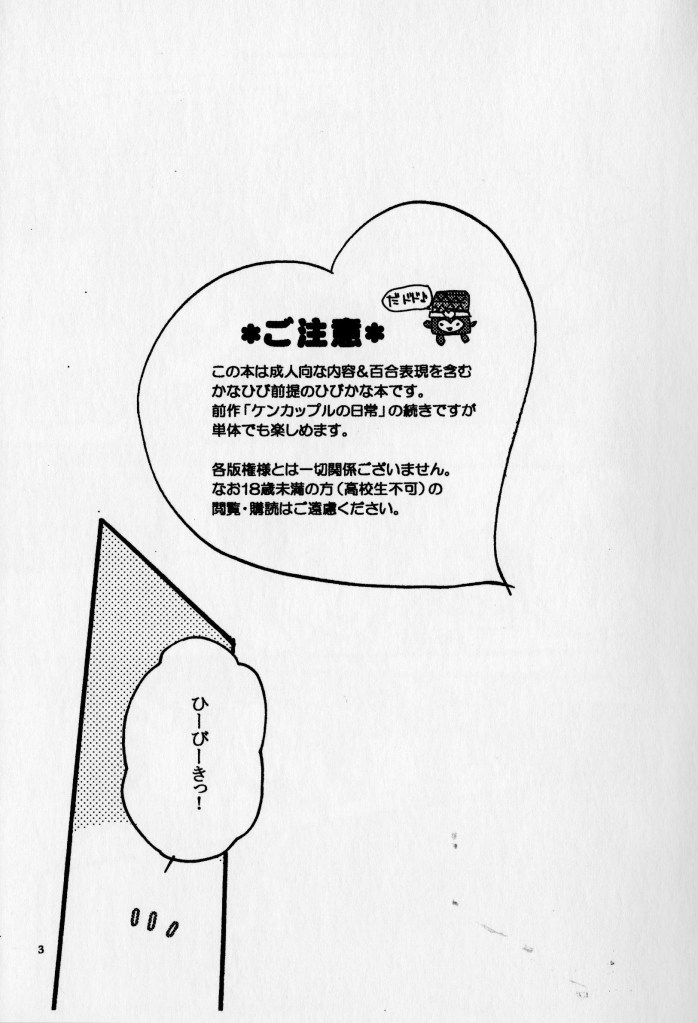 だドド♪
＊ご注意＊
この本は成人向な内容＆百合表現を含む
かなひび前提のひびかな本です。
前作「ケンカップルの日常」の続きですが
単体でも楽しめます。
各版権様とは一切関係ございません。
なお18歳未満の方（高校生不可）の
閲覧・購読はご遠慮ください。
ひーびーきっ！
3